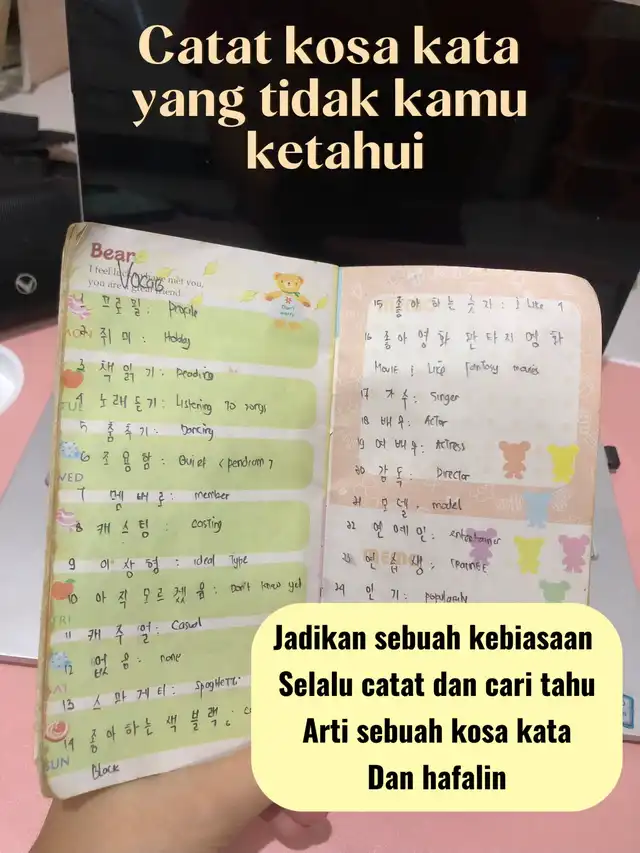 Catat kosa kata
yang tidak kamu
ketahui
Bear
Vocab
I feel lucky have met you,
you are a great friend
1 프로필: Profile
2 취미: Hobby
3 책 읽기: Reading
4 노래 듣기: Listening to songs
5 춤추기: Dancing
6 조용함: Quiet (pendiam)
7 멤버로: member
8 캐스팅: casting
9 이상형: ideal Type
10 아직 모르겠음: Don't know yet
11 캐주얼: Casual
12 없음: none
13 스파게티: Spaghetti
14 좋아하는 색 블랙:
Black
15 좋아하는 숫자: I Like 9
16 좋아 영화 판타지 영화
Movie I Like Fantasy movies
17 가수: Singer
18 배우: Actor
19 여배우: Actress
20 감독: Director
21 모델: model
22 연예인: entertainer
23 연습생: TRAINEE
24 인기: popularity
TUE
WED
FRI
SUN
Jadikan sebuah kebiasaan
Selalu catat dan cari tahu
Arti sebuah kosa kata
Dan hafalin